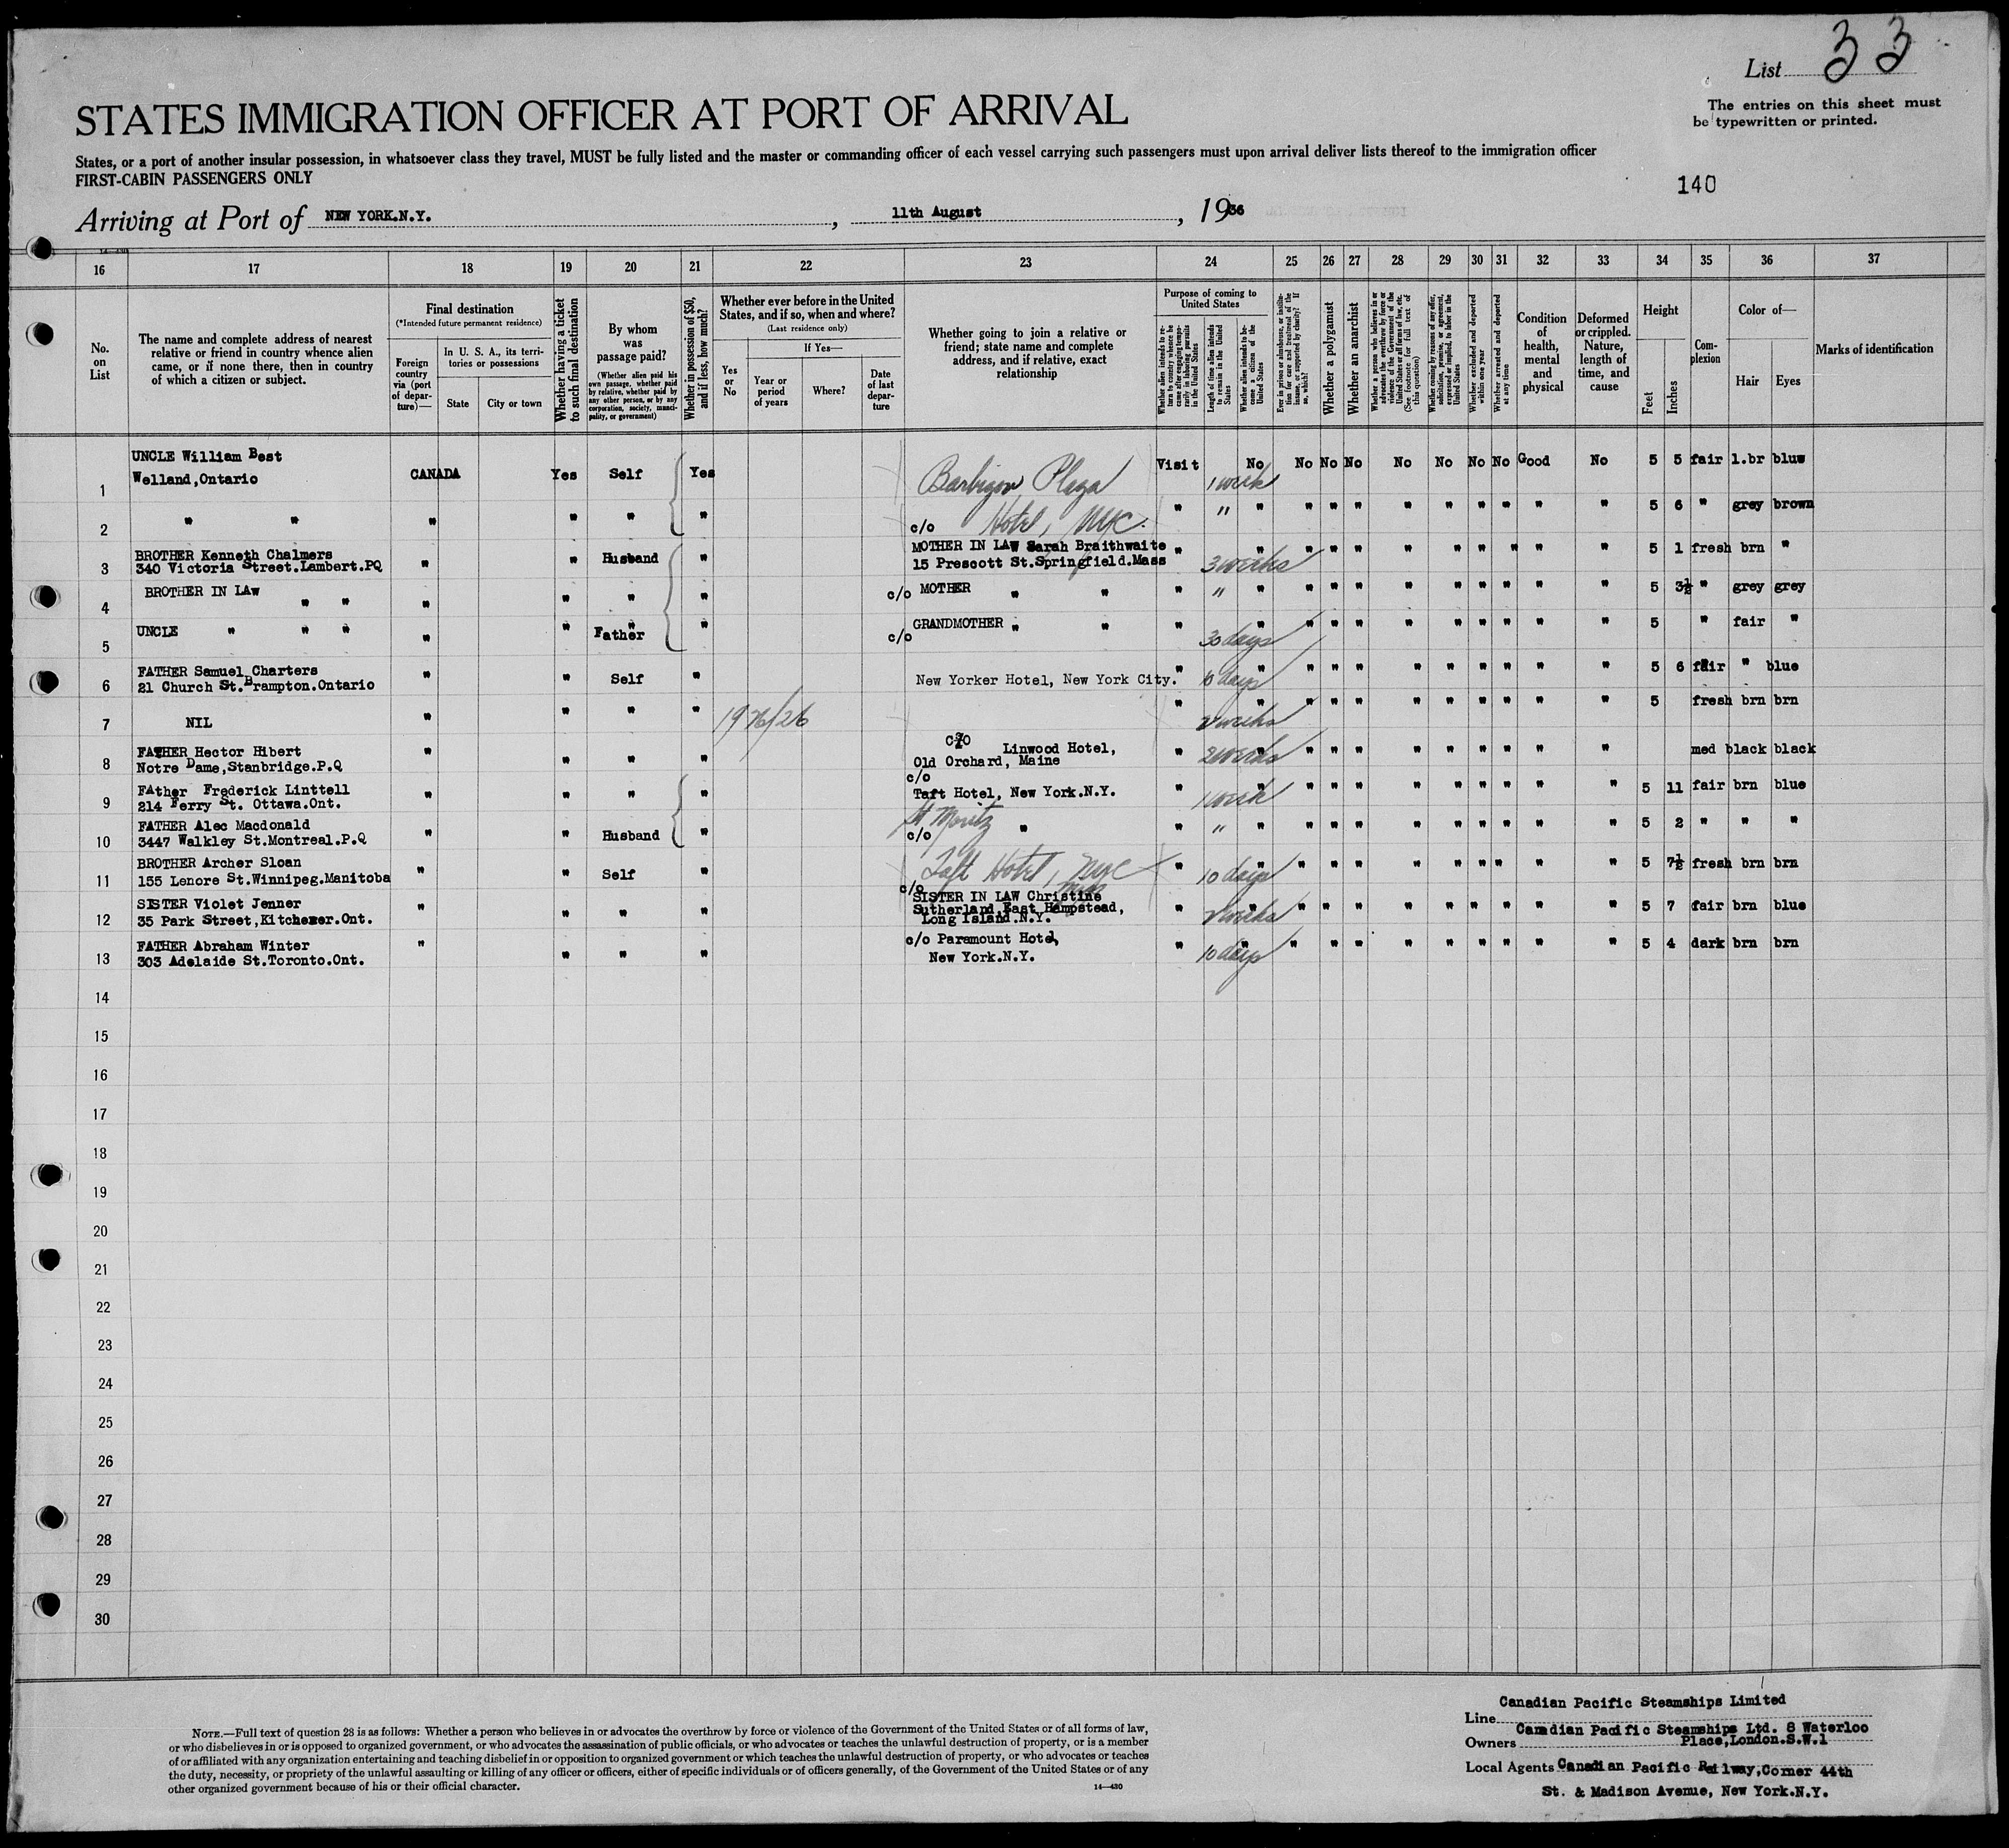 List 33
The entries on this sheet must
be typewritten or printed.
STATES IMMIGRATION OFFICER AT PORT OF ARRIVAL
States, or a port of another insular possession, in whatsoever class they travel, MUST be fully listed and the master or commanding officer of each vessel carrying such passengers must upon arrival deliver lists thereof to the immigration officer
FIRST-CABIN PASSENGERS ONLY
140
Arriving at Port of NEW YORK.N.Y. , 11th August , 1936
16 17 18 19 20 21 22 23 24 25 26 27 28 29 30 31 32 33 34 35 36 37
No. on List
The name and complete address of nearest relative or friend in country whence alien came, or if none there, then in country of which a citizen or subject.
Final destination
(*Intended future permanent residence)
Foreign country via (port of departure)—
In U. S. A., its territories or possessions
State
City or town
Whether having a ticket to such final destination
By whom was passage paid?
(Whether alien paid his own passage, whether paid by relative, whether paid by any other person, or by any corporation, society, municipality, or government)
Whether in possession of $50, and if less, how much?
Whether ever before in the United States, and if so, when and where?
(Last residence only)
Yes or No
If Yes—
Year or period of years
Where?
Date of last departure
Whether going to join a relative or friend; state name and complete address, and if relative, exact relationship
Purpose of coming to United States
Whether alien intends to return to country whence he came after engaging temporarily in laboring pursuits in the United States
Length of time alien intends to remain in the United States
Whether alien intends to become a citizen of the United States
Ever in prison or almshouse, or institution for care and treatment of the insane, or supported by charity? If so, which?
Whether a polygamist
Whether an anarchist
Whether a person who believes in or advocates the overthrow by force or violence of the Government of the United States or all forms of law, etc. (See footnote for full text of this question)
Whether coming by reason of any offer, solicitation, promise, or agreement, expressed or implied, to labor in the United States
Whether excluded and deported within one year
Whether arrested and deported at any time
Condition of health, mental and physical
Deformed or crippled. Nature, length of time, and cause
Height
Feet
Inches
Complexion
Color of—
Hair
Eyes
Marks of identification
1 UNCLE William Best
Welland,Ontario CANADA Yes Self Yes Barbizon Plaza Visit 1 week No No No No No No No No Good No 5 5 fair l.br bluw
2 " " " " " " c/o Hotel, NYC. " " " " " " " " " " " " 5 6 " grey brown
3 BROTHER Kenneth Chalmers
340 Victoria Street.Lambert.PQ " " Husband " MOTHER IN LAW Sarah Braithwaite
15 Prescott St.Springfield.Mass " 3 weeks " " " " " " " " " " 5 1 fresh brn "
4 BROTHER IN LAW " " " " " " c/o MOTHER " " " " " " " " " " " " " " 5 3½ " grey grey
5 UNCLE " " " " " " Father " c/o GRANDMOTHER " " " 30 days " " " " " " " " " " 5 " fair "
6 FATHER Samuel Charters
21 Church St.Brampton.Ontario " " Self " New Yorker Hotel, New York City. " 10 days " " " " " " " " " " 5 6 fair " blue
7 NIL " " " " " 2 weeks " " " " " " " " " " 5 fresh brn brn
8 FATHER Hector Hibert
Notre Dame,Stanbridge.P.Q " " " " C/O Linwood Hotel,
Old Orchard, Maine " 2 weeks " " " " " " " " " " med black black
9 FAther Frederick Linttell
214 Ferry St. Ottawa.Ont. " " " " c/o
Taft Hotel, New York.N.Y. " 1 week " " " " " " " " " " 5 11 fair brn blue
10 FATHER Alec Macdonald
3447 Walkley St.Montreal.P.Q " " Husband " St Moritz
c/o " " " " " " " " " " " " " " 5 2 " " "
11 BROTHER Archer Sloan
155 Lenore St.Winnipeg.Manitoba " " Self " Taft Hotel, NYC " 10 days " " " " " " " " " " 5 7½ fresh brn brn
12 SISTER Violet Jenner
35 Park Street,Kitchener.Ont. " " " " c/o
SISTER IN LAW Christine
Sutherland,East Hampstead,
Long Island.N.Y. " 2 weeks " " " " " " " " " " 5 7 fair brn blue
13 FATHER Abraham Winter
303 Adelaide St.Toronto.Ont. " " " " c/o Paramount Hotel,
New York.N.Y. " 10 days " " " " " " " " " " 5 4 dark brn brn
14
15
16
17
18
19
20
21
22
23
24
25
26
27
28
29
30
NOTE.—Full text of question 28 is as follows: Whether a person who believes in or advocates the overthrow by force or violence of the Government of the United States or of all forms of law,
or who disbelieves in or is opposed to organized government, or who advocates the assassination of public officials, or who advocates or teaches the unlawful destruction of property, or is a member
of or affiliated with any organization entertaining and teaching disbelief in or opposition to organized government or which teaches the unlawful destruction of property, or who advocates or teaches
the duty, necessity, or propriety of the unlawful assaulting or killing of any officer or officers, either of specific individuals or of officers generally, of the Government of the United States or of any
other organized government because of his or their official character.
14—430
Canadian Pacific Steamships Limited
Line
Owners Canadian Pacific Steamships Ltd. 8 Waterloo
Place,London.S.W.1
Local Agents Canadian Pacific Railway,Corner 44th
St. & Madison Avenue, New York.N.Y.